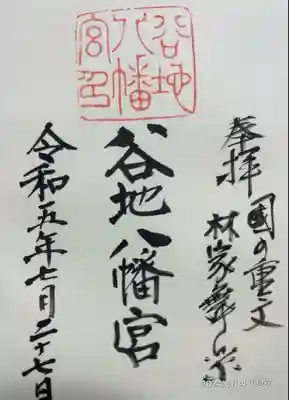 谷地
八幡
宮印
奉拝
國の重文
林家舞楽
谷地八幡宮
令和五年七月二十七日